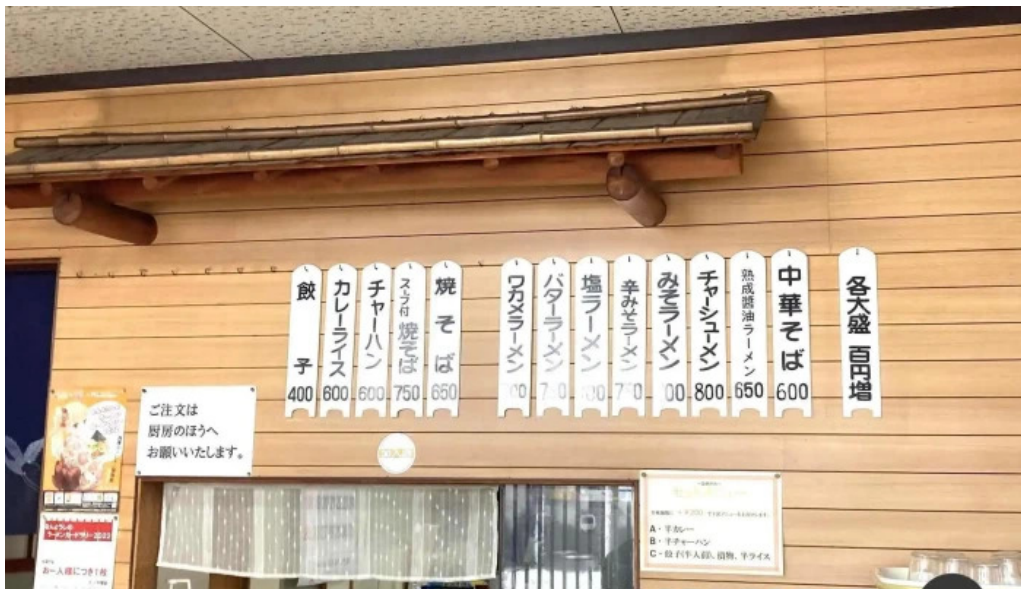 各大盛 百円増
中華そば 600
熟成醤油ラーメン 650
チャーシューメン 800
みそラーメン
辛みそラーメン
塩ラーメン
バターラーメン
ワカメラーメン
焼そば 650
スープ付 焼そば 750
チャーハン 600
カレーライス 600
餃子 400
ご注文は
厨房のほうへ
お願いいたします。
A・半カレー
B・半チャーハン
C・餃子(半人前)、漬物、半ライス
ラーメンカードラリー2022
お一人様につき1枚